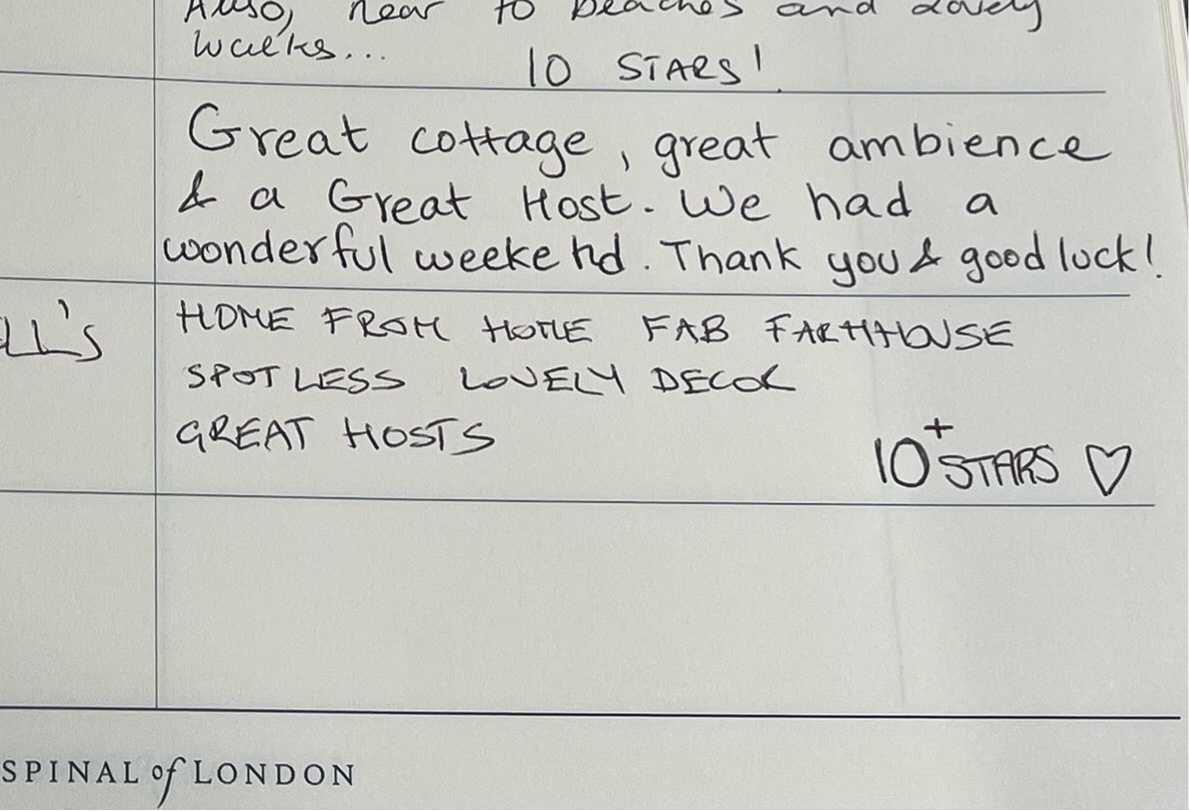 Also, near to beaches and lovely
walks...
10 STARS!
Great cottage, great ambience
& a Great Host. We had a
wonderful weekend. Thank you & good luck!
LL's
HOME FROM HOME FAB FARMHOUSE
SPOTLESS LOVELY DECOR
GREAT HOSTS
10+ STARS ♡
SPINAL of LONDON